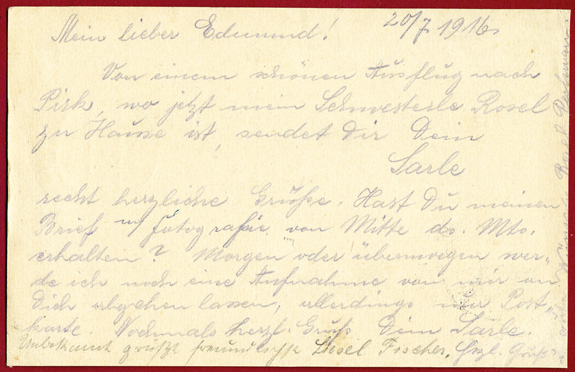 20/7 1916.
Mein lieber Edmund!
Von einem schönen Ausflug nach
Pirk, wo jetzt mein Schwesterle Rosel
zu Hause ist, sendet Dir Dein
Sarle
recht herzliche Grüße. Hast Du meinen
Brief u. Fotografie von Mitte ds. Mts.
erhalten? Morgen oder übermorgen wer-
de ich noch eine Aufnahme von mir an
Dich abgehen lassen, allerdings nur Post-
karte. Nochmals herzl. Gruß Dein Sarle.
Unbekannt grüßt freundlichst Liesel Fischer, Hrzl. Grüße
Rosel